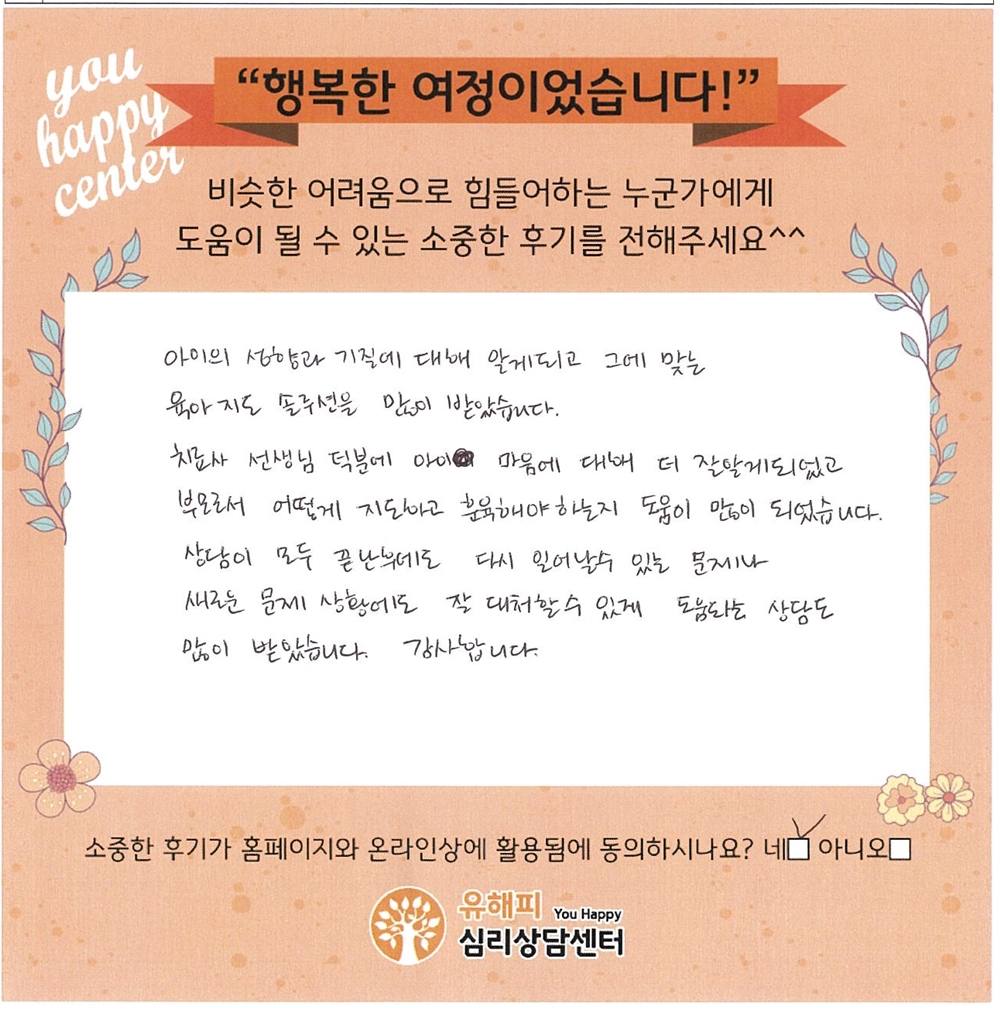 you
happy
center
“행복한 여정이었습니다!”
비슷한 어려움으로 힘들어하는 누군가에게
도움이 될 수 있는 소중한 후기를 전해주세요^^
아이의 성향과 기질에 대해 알게되고 그에 맞는
육아 지도 솔루션을 많이 받았습니다.
치료사 선생님 덕분에 아이 마음에 대해 더 잘알게되었고
부모로서 어떻게 지도하고 훈육해야 하는지 도움이 많이 되었습니다.
상담이 모두 끝난후에도 다시 일어날수 있는 문제나
새로운 문제 상황에도 잘 대처할수 있게 도움되는 상담도
많이 받았습니다. 감사합니다.
소중한 후기가 홈페이지와 온라인상에 활용됨에 동의하시나요? 네 아니오
유해피 You Happy
심리상담센터